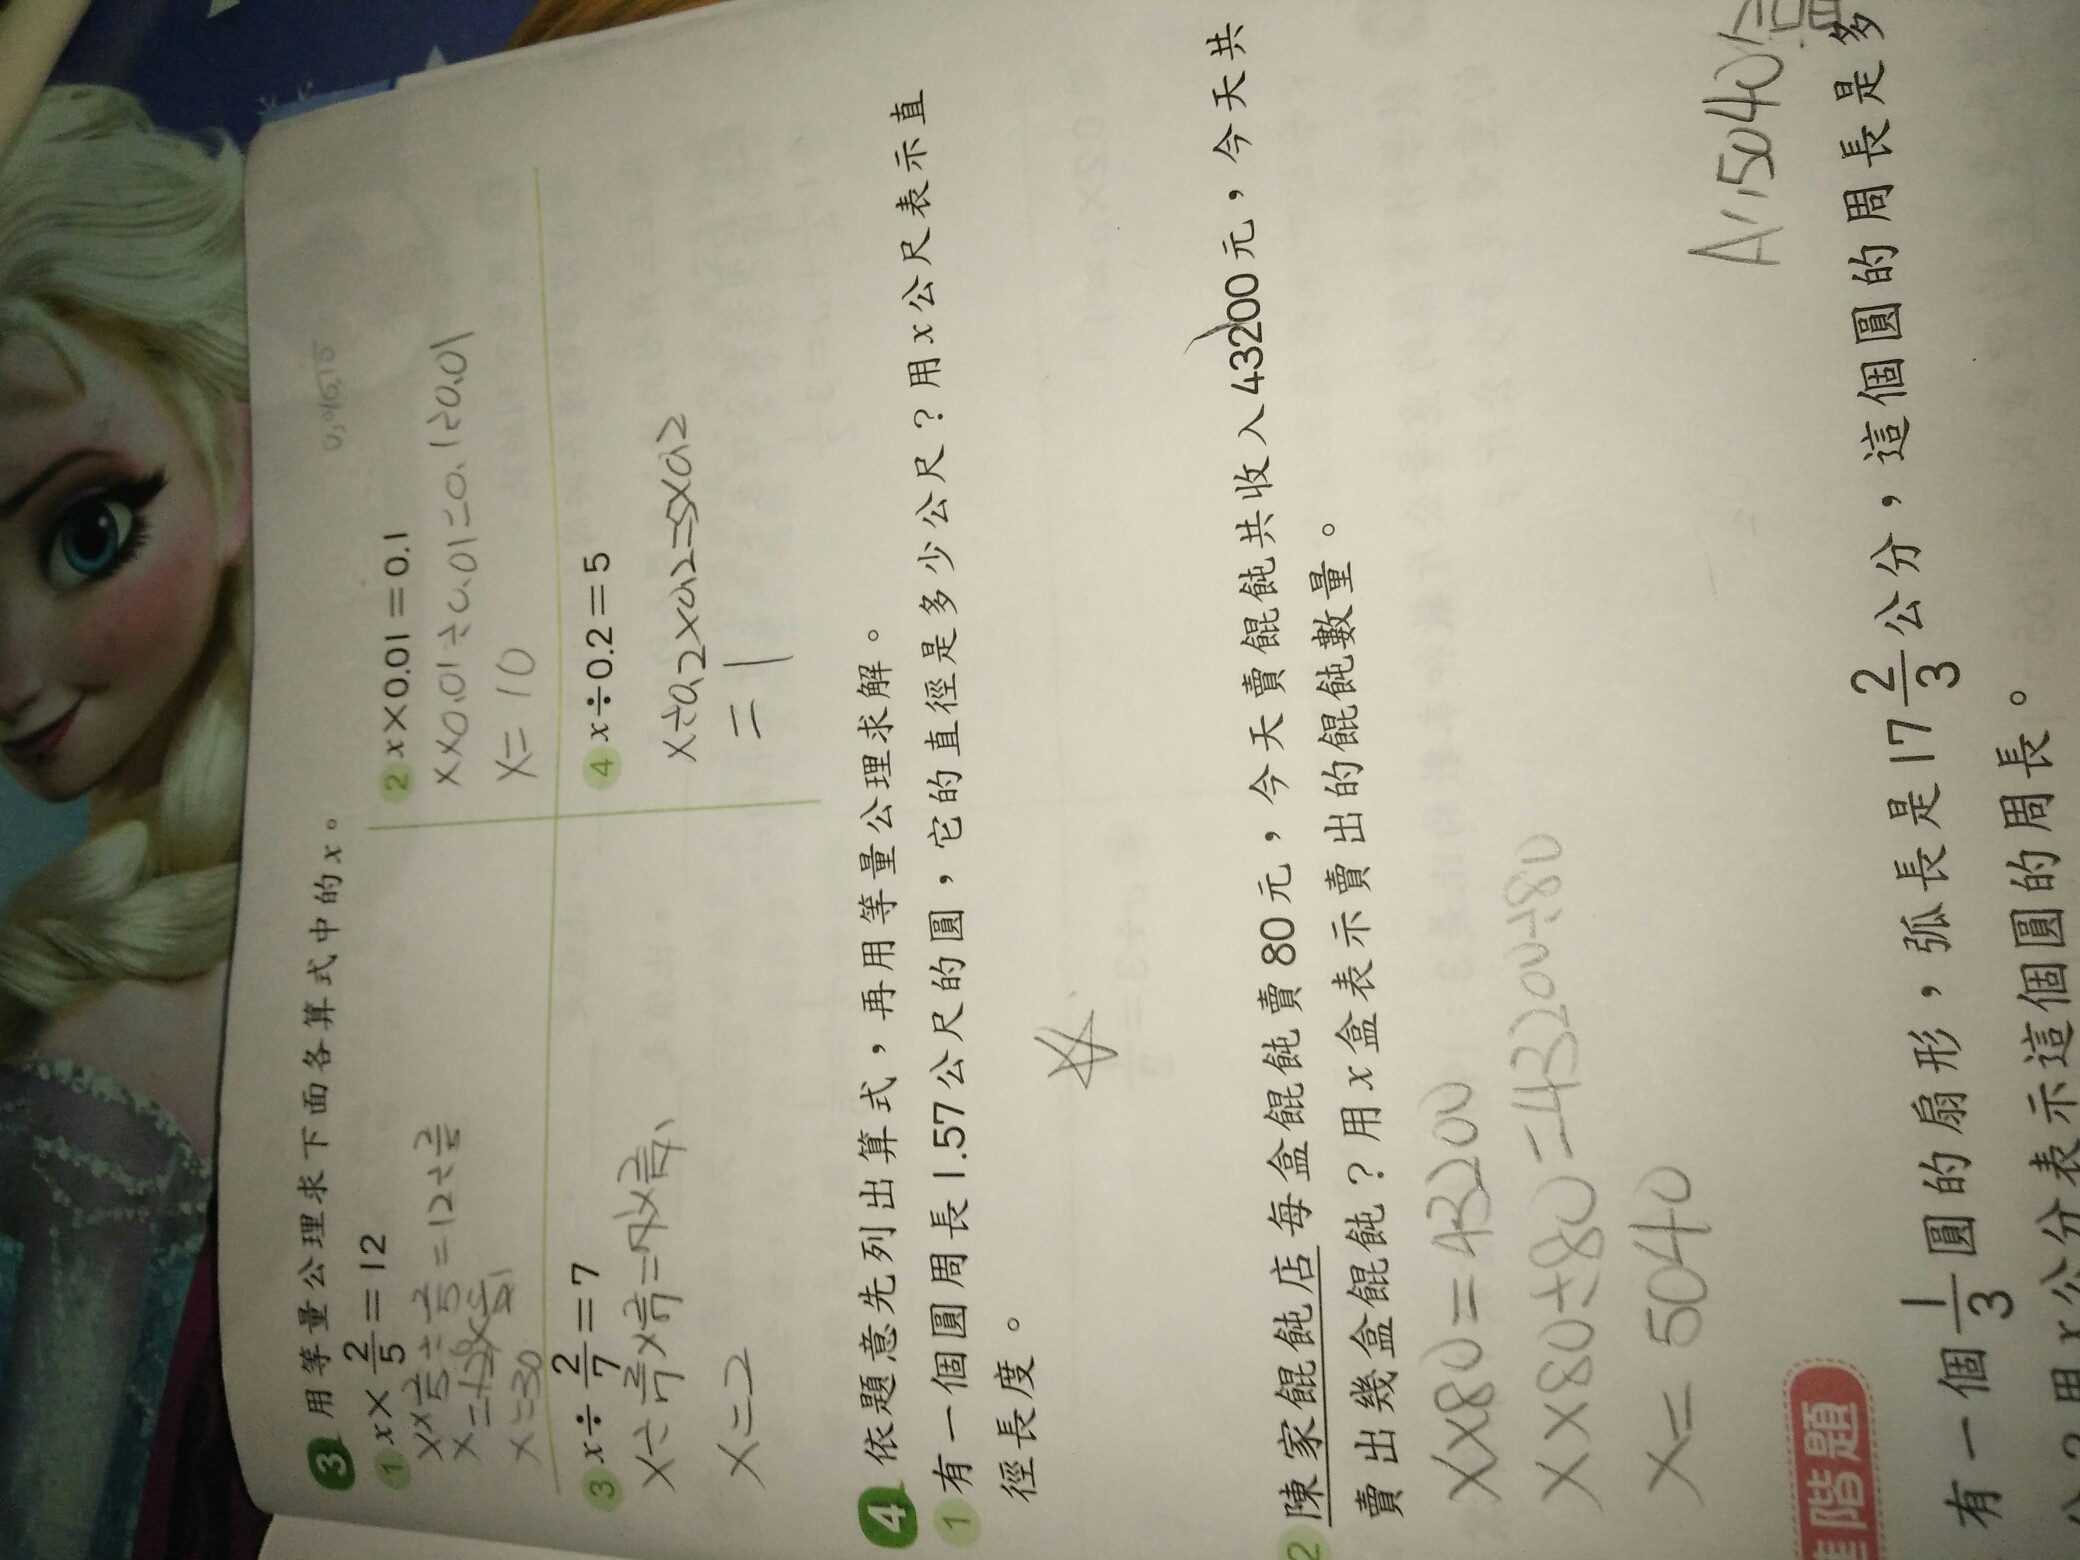 3 用等量公理求下面各算式中的x。
1 x×2/5=12
x×2/5÷2/5=12÷2/5
x=30
2 x×0.01=0.1
x×0.01÷0.01=0.1÷0.01
x=10
3 x÷2/7=7
x÷2/7×2/7=7×2/7
x=2
4 x÷0.2=5
x÷0.2×0.2=5×0.2
=1
4 依題意先列出算式，再用等量公理求解。
1 有一個圓周長1.57公尺的圓，它的直徑是多少公尺？用x公尺表示直
徑長度。
2 陳家餛飩店每盒餛飩賣80元，今天賣餛飩共收入43200元，今天共
賣出幾盒餛飩？用x盒表示賣出的餛飩數量。
x×80=43200
x×80÷80=43200÷80
x=5040
A:5040
階題
有一個1/3圓的扇形，弧長是17 2/3公分，這個圓的周長是多
用x公分表示這個圓的周長。